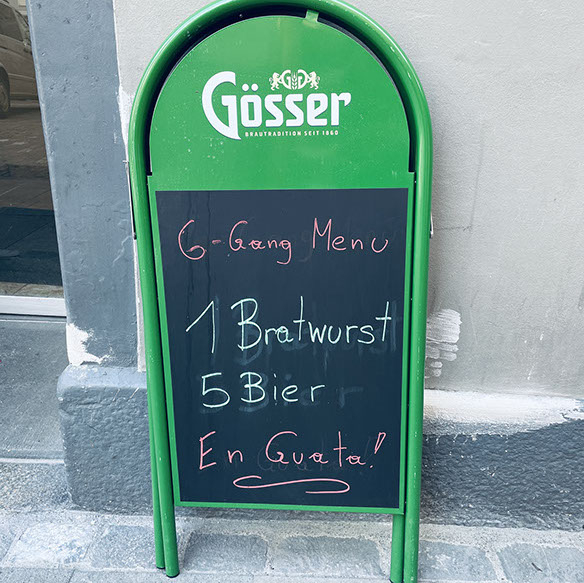 Gösser
BRAUTRADITION SEIT 1860
6-Gang Menu
1 Bratwurst
5 Bier
En Guata!